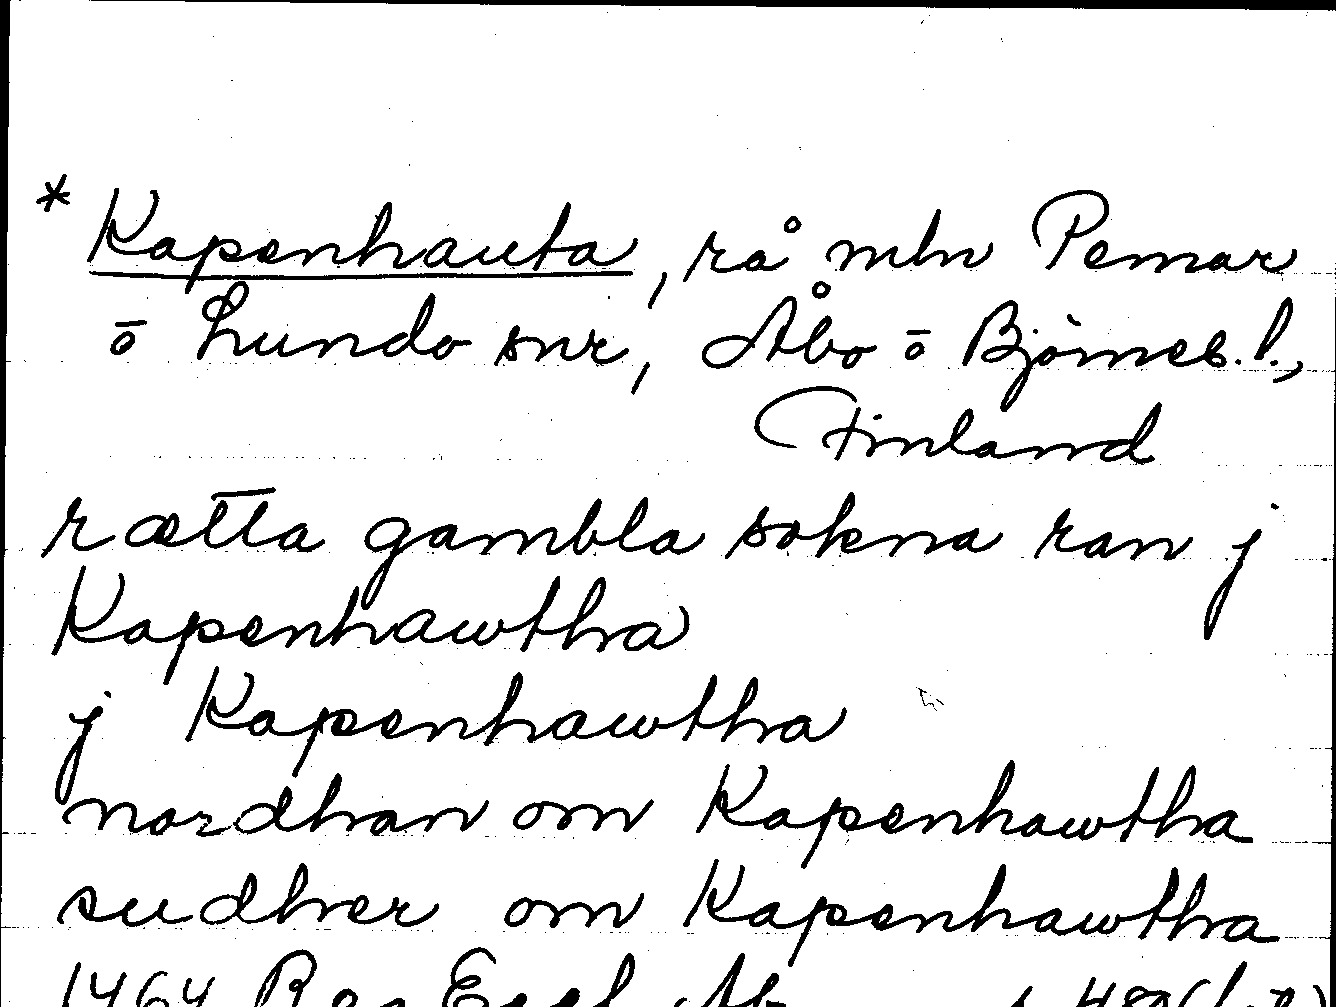 * Kapenhauta, rå mln Pemar
ō Lundo snr, Åbo ō Björneb. l.,
Finland
rætta gambla sokna ran j
Kapenhawtha
j Kapenhawtha
nordhan om Kapenhawtha
sudher om Kapenhawtha
1464 Reg Eccl Ab